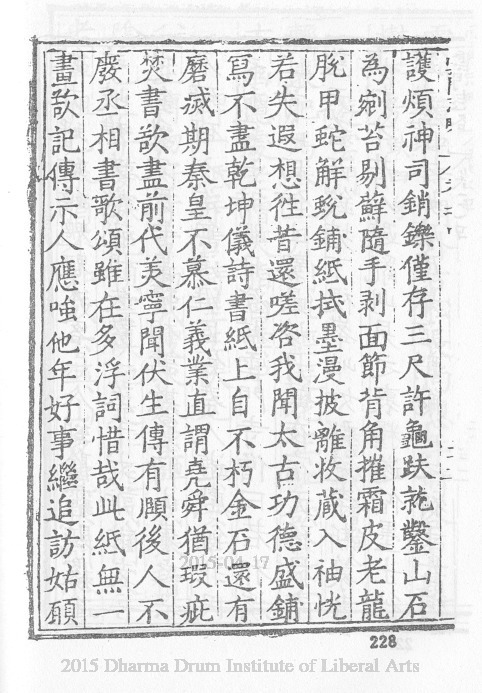 護煩神司銷鑠僅存三尺許龜趺就鑿山石
為剜苔剔蘚隨手剥面節背角摧霜皮老龍
脫甲蛇解蛻鋪紙拭墨漫披離收蔵入袖恍
若失遐想徃昔還嗟咨我聞太古功德盛鋪
寫不盡乾坤儀詩書紙上自不朽金石還有
磨滅期秦皇不慕仁義業直謂堯舜猶瑕疵
焚書欲盡前代美寧聞伏生傳有頤後人不
廢丞相書歌頌雖在多浮詞惜哉此紙無一
畫歆記傳示人應嗤他年好事繼追訪姑願
228
2015-04-17
2015 Dharma Drum Institute of Liberal Arts